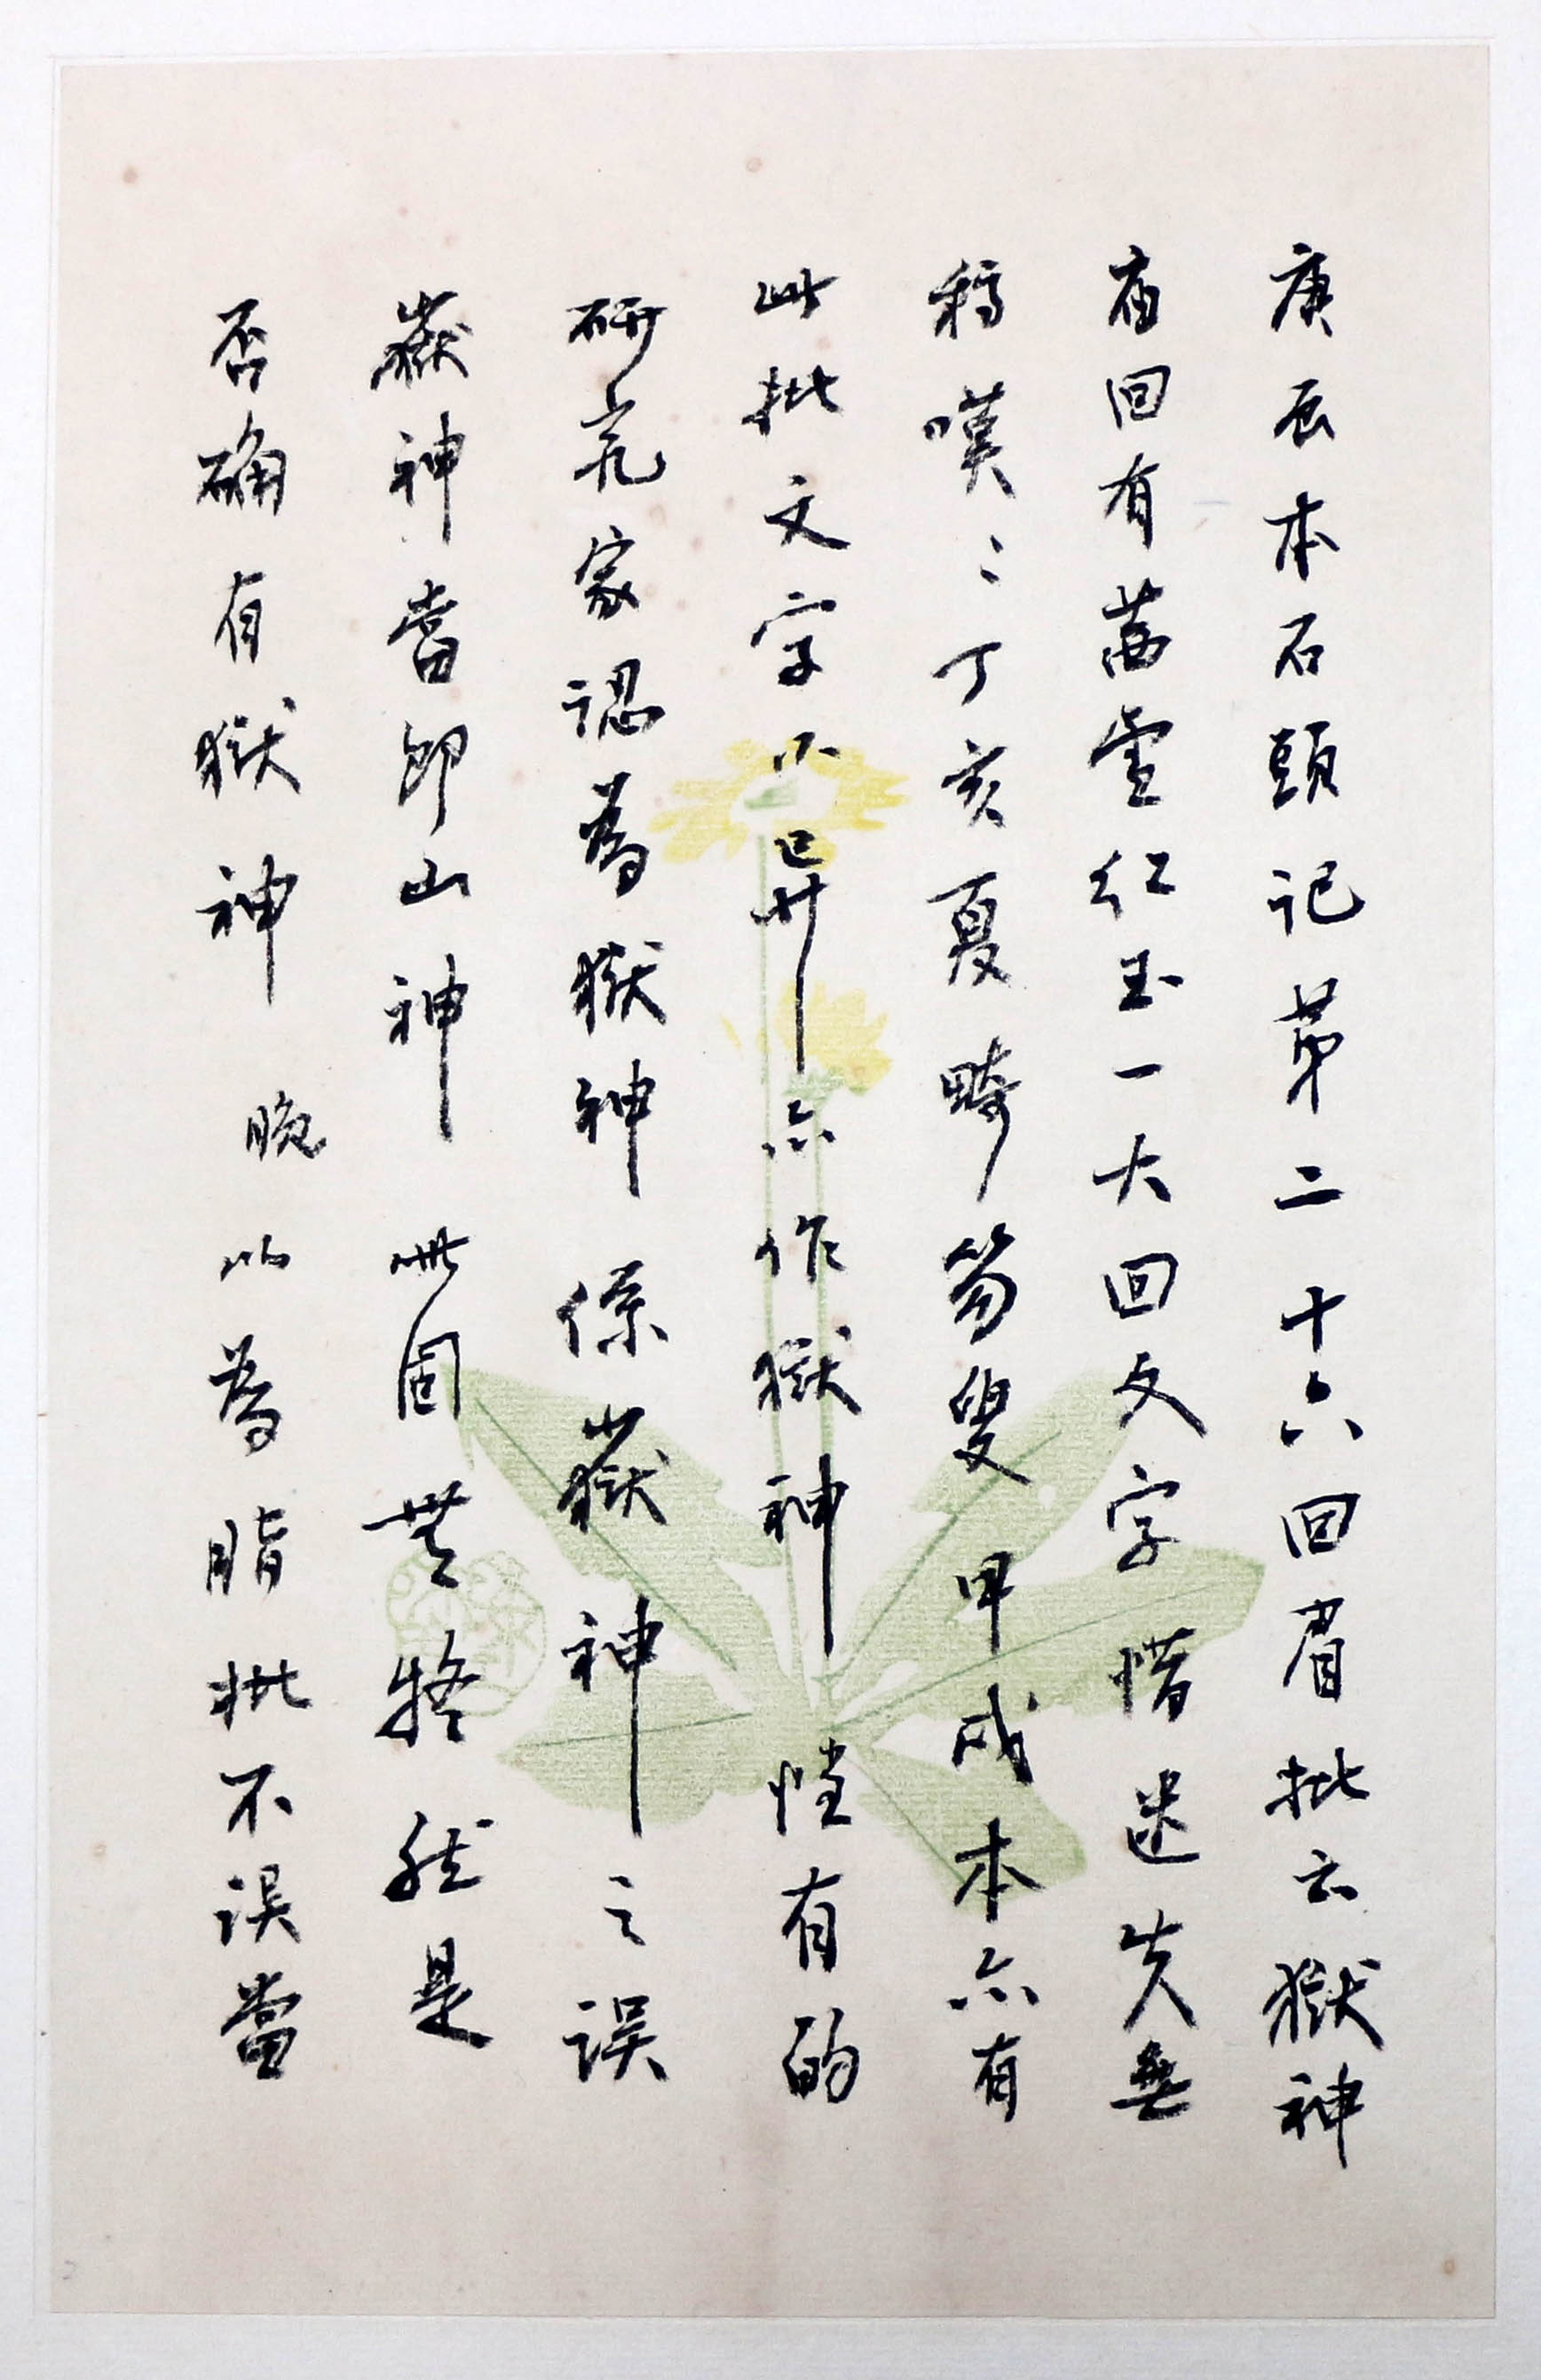 庚辰本石頭記第二十六回眉批云獄神
庙回有茜雪红玉一大回文字惜迷失無
稿嘆〻丁亥夏畸笏叟甲戌本亦有
此批文字小異亦作獄神惟有的
研究家認為獄神係嶽神之误
嶽神當即山神此固無碍然是
否确有獄神晚以為脂批不误當